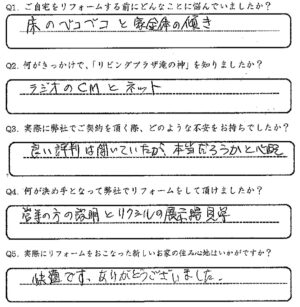 Q1. ご自宅をリフォームする前にどんなことに悩んでいましたか?
床のベコベコと家全体の傾き
Q2. 何がきっかけで、「リビングプラザ滝の神」を知りましたか?
ラジオのCMとネット
Q3. 実際に弊社でご契約を頂く際、どのような不安をお持ちでしたか?
良い評判は聞いていたが、本当だろうかと心配
Q4. 何が決め手となって弊社でリフォームをして頂けましたか?
営業の方の説明とリクシルの展示場見学
Q5. 実際にリフォームをおこなった新しいお家の住み心地はいかがですか?
快適です、ありがとうございました。